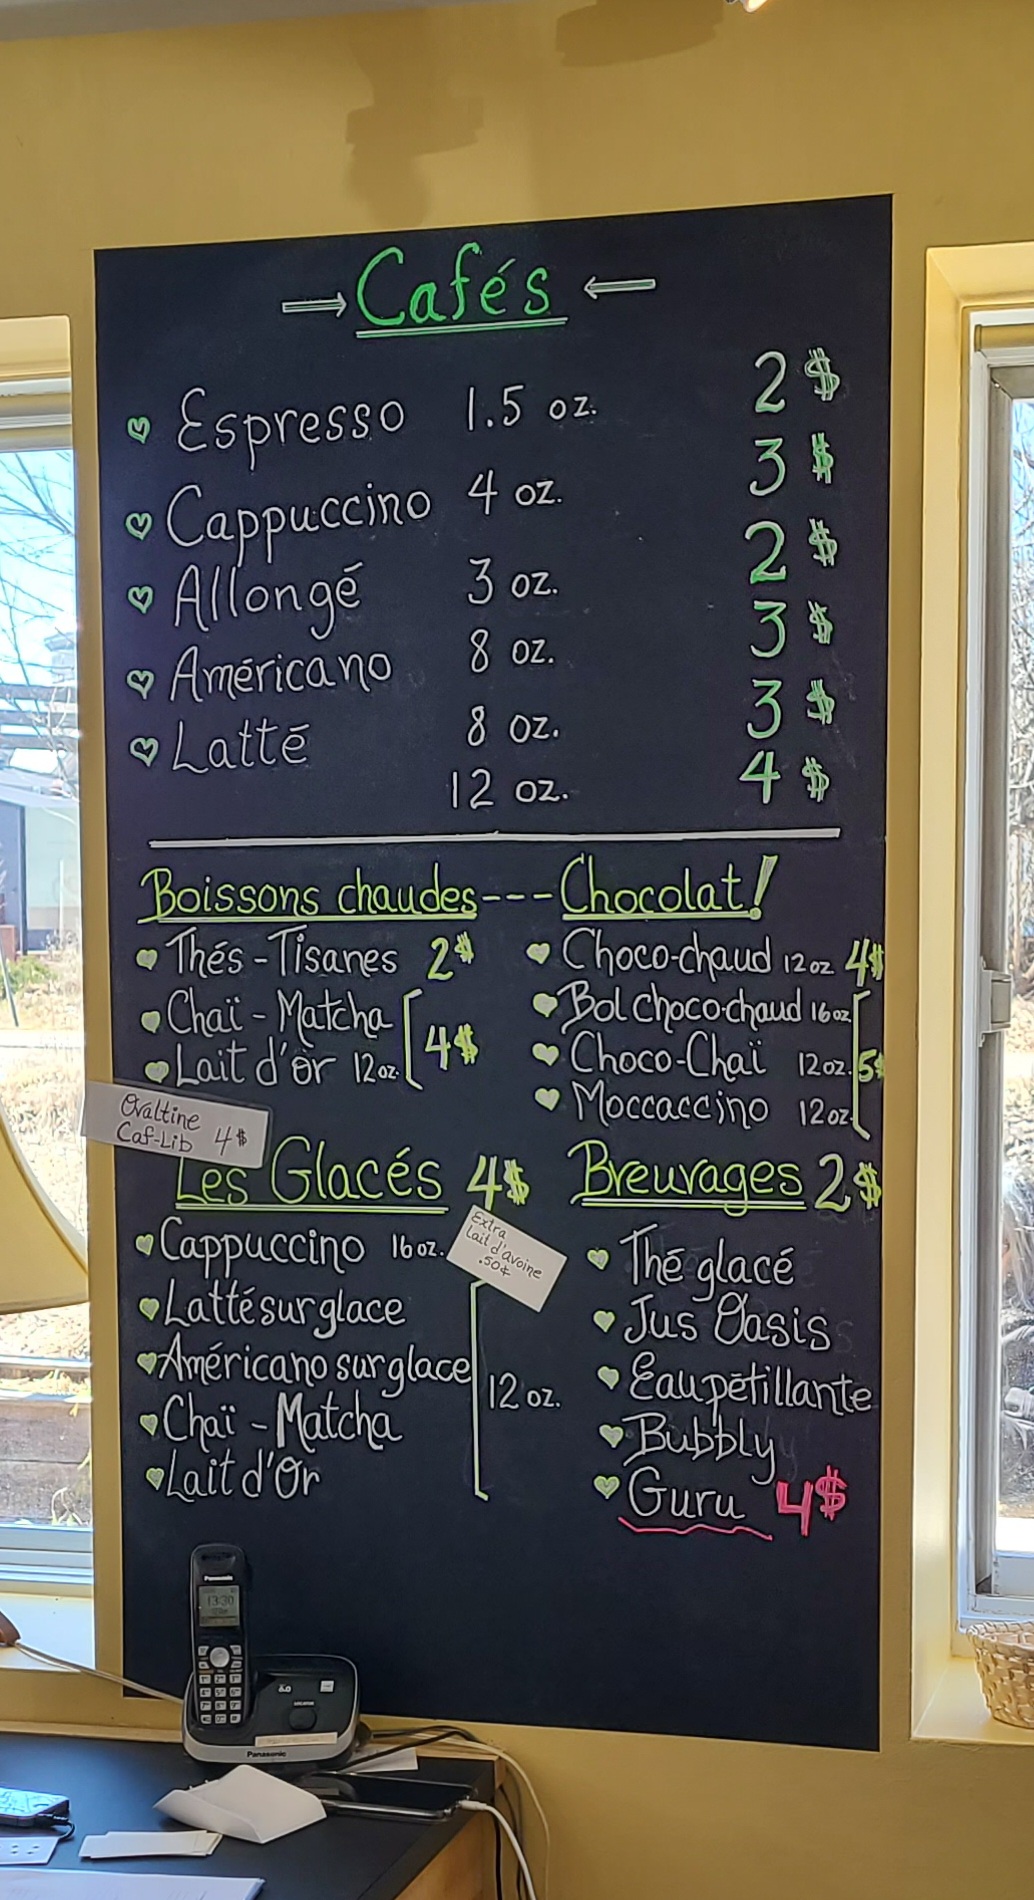 Cafés
Espresso 1.5 oz. 2$
Cappuccino 4 oz. 3$
Allongé 3 oz. 2$
Américano 8 oz. 3$
Latté 8 oz. 3$
12 oz. 4$
Boissons chaudes --- Chocolat!
Thés - Tisanes 2$
Chaï - Matcha
Lait d'or 12oz. 4$
Ovaltine
Caf-Lib 4$
Choco-chaud 12oz 4$
Bol choco-chaud 16oz
Choco-Chaï 12oz. 5$
Moccaccino 12oz
Les Glacés 4$
Cappuccino 16oz.
Extra
Lait d'avoine
.50¢
Latté sur glace
Américano sur glace
12 oz.
Chaï - Matcha
Lait d'Or
Breuvages 2$
Thé glacé
Jus Oasis
Eau pétillante
Bubbly
Guru 4$
Panasonic
13:30
Panasonic